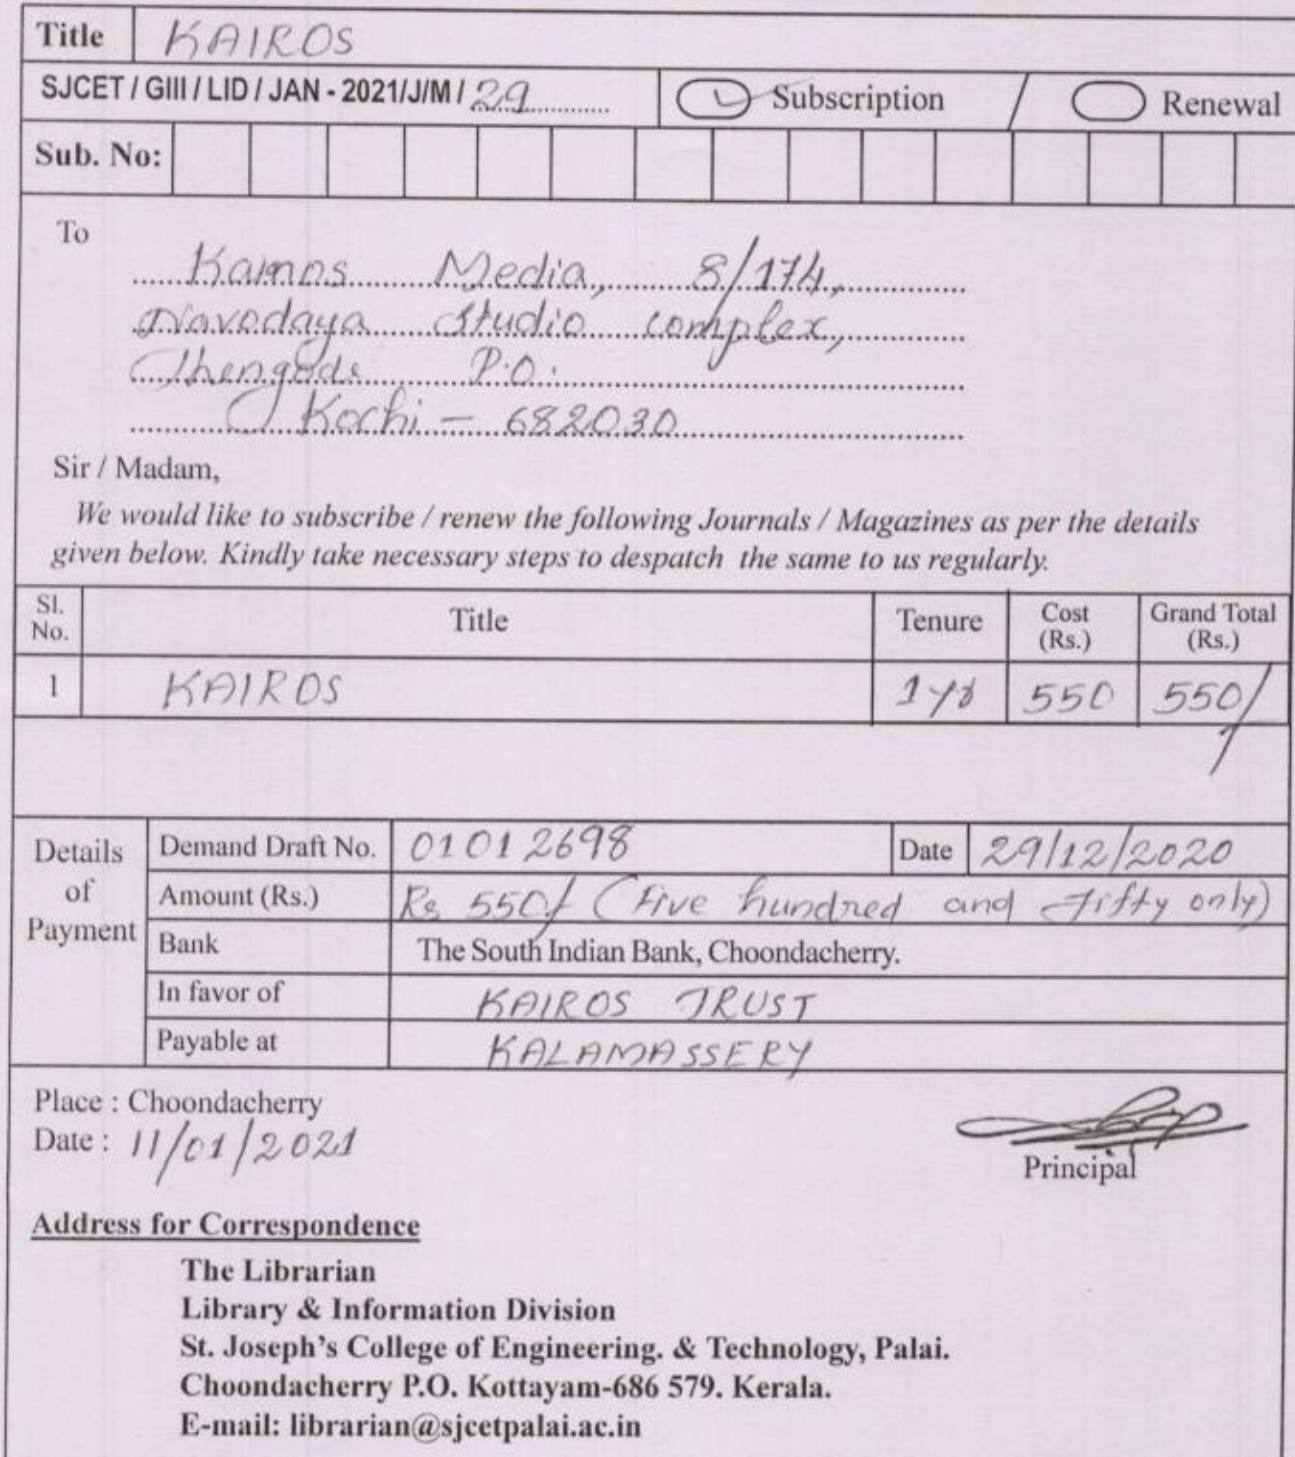 Title KAIROS
SJCET / GIII / LID / JAN - 2021/J/M / 29 Subscription / Renewal
Sub. No:
To
Kairos Media, 8/174,
Navodaya Studio complex,
Thengode P.O.
Kochi - 682030
Sir / Madam,
We would like to subscribe / renew the following Journals / Magazines as per the details
given below. Kindly take necessary steps to despatch the same to us regularly.
Sl. No. Title Tenure Cost (Rs.) Grand Total (Rs.)
1 KAIROS 1 yr 550 550/
Details of Payment
Demand Draft No. 01012698 Date 29/12/2020
Amount (Rs.) Rs 550/ (Five hundred and fifty only)
Bank The South Indian Bank, Choondacherry.
In favor of KAIROS TRUST
Payable at KALAMASSERY
Place : Choondacherry
Date : 11/01/2021
Principal
Address for Correspondence
The Librarian
Library & Information Division
St. Joseph's College of Engineering. & Technology, Palai.
Choondacherry P.O. Kottayam-686 579. Kerala.
E-mail: librarian@sjcetpalai.ac.in